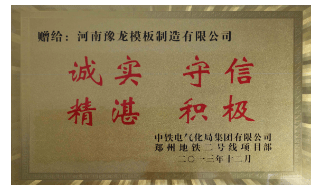 赠给：河南豫龙模板制造有限公司
诚实 守信
精湛 积极
中铁电气化局集团有限公司
郑州地铁二号线项目部
二〇一三年十二月